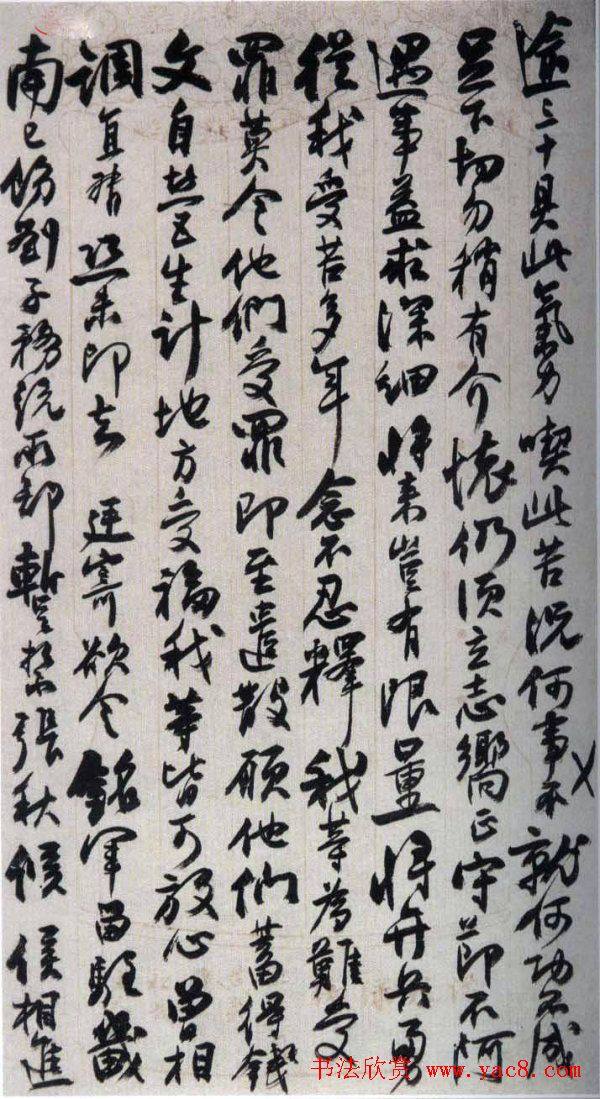 逾三十具此氣力喫此苦況何事不就何功不成
足下切勿稍有介懷仍須立志嚮正守節不阿
遇事益求深細將來豈有限量將弁兵勇
從我受苦多年念不忍釋我等為難受
罪莫令他們受罪即至遣散願他們蓄得錢
文自營生計地方受福我等皆可放心曾相
調直督照來即去廷寄欲令銘軍留駐畿
南已飭劉子務統兩部暫紮張秋候侯相進
书法欣赏 www.yac8.com